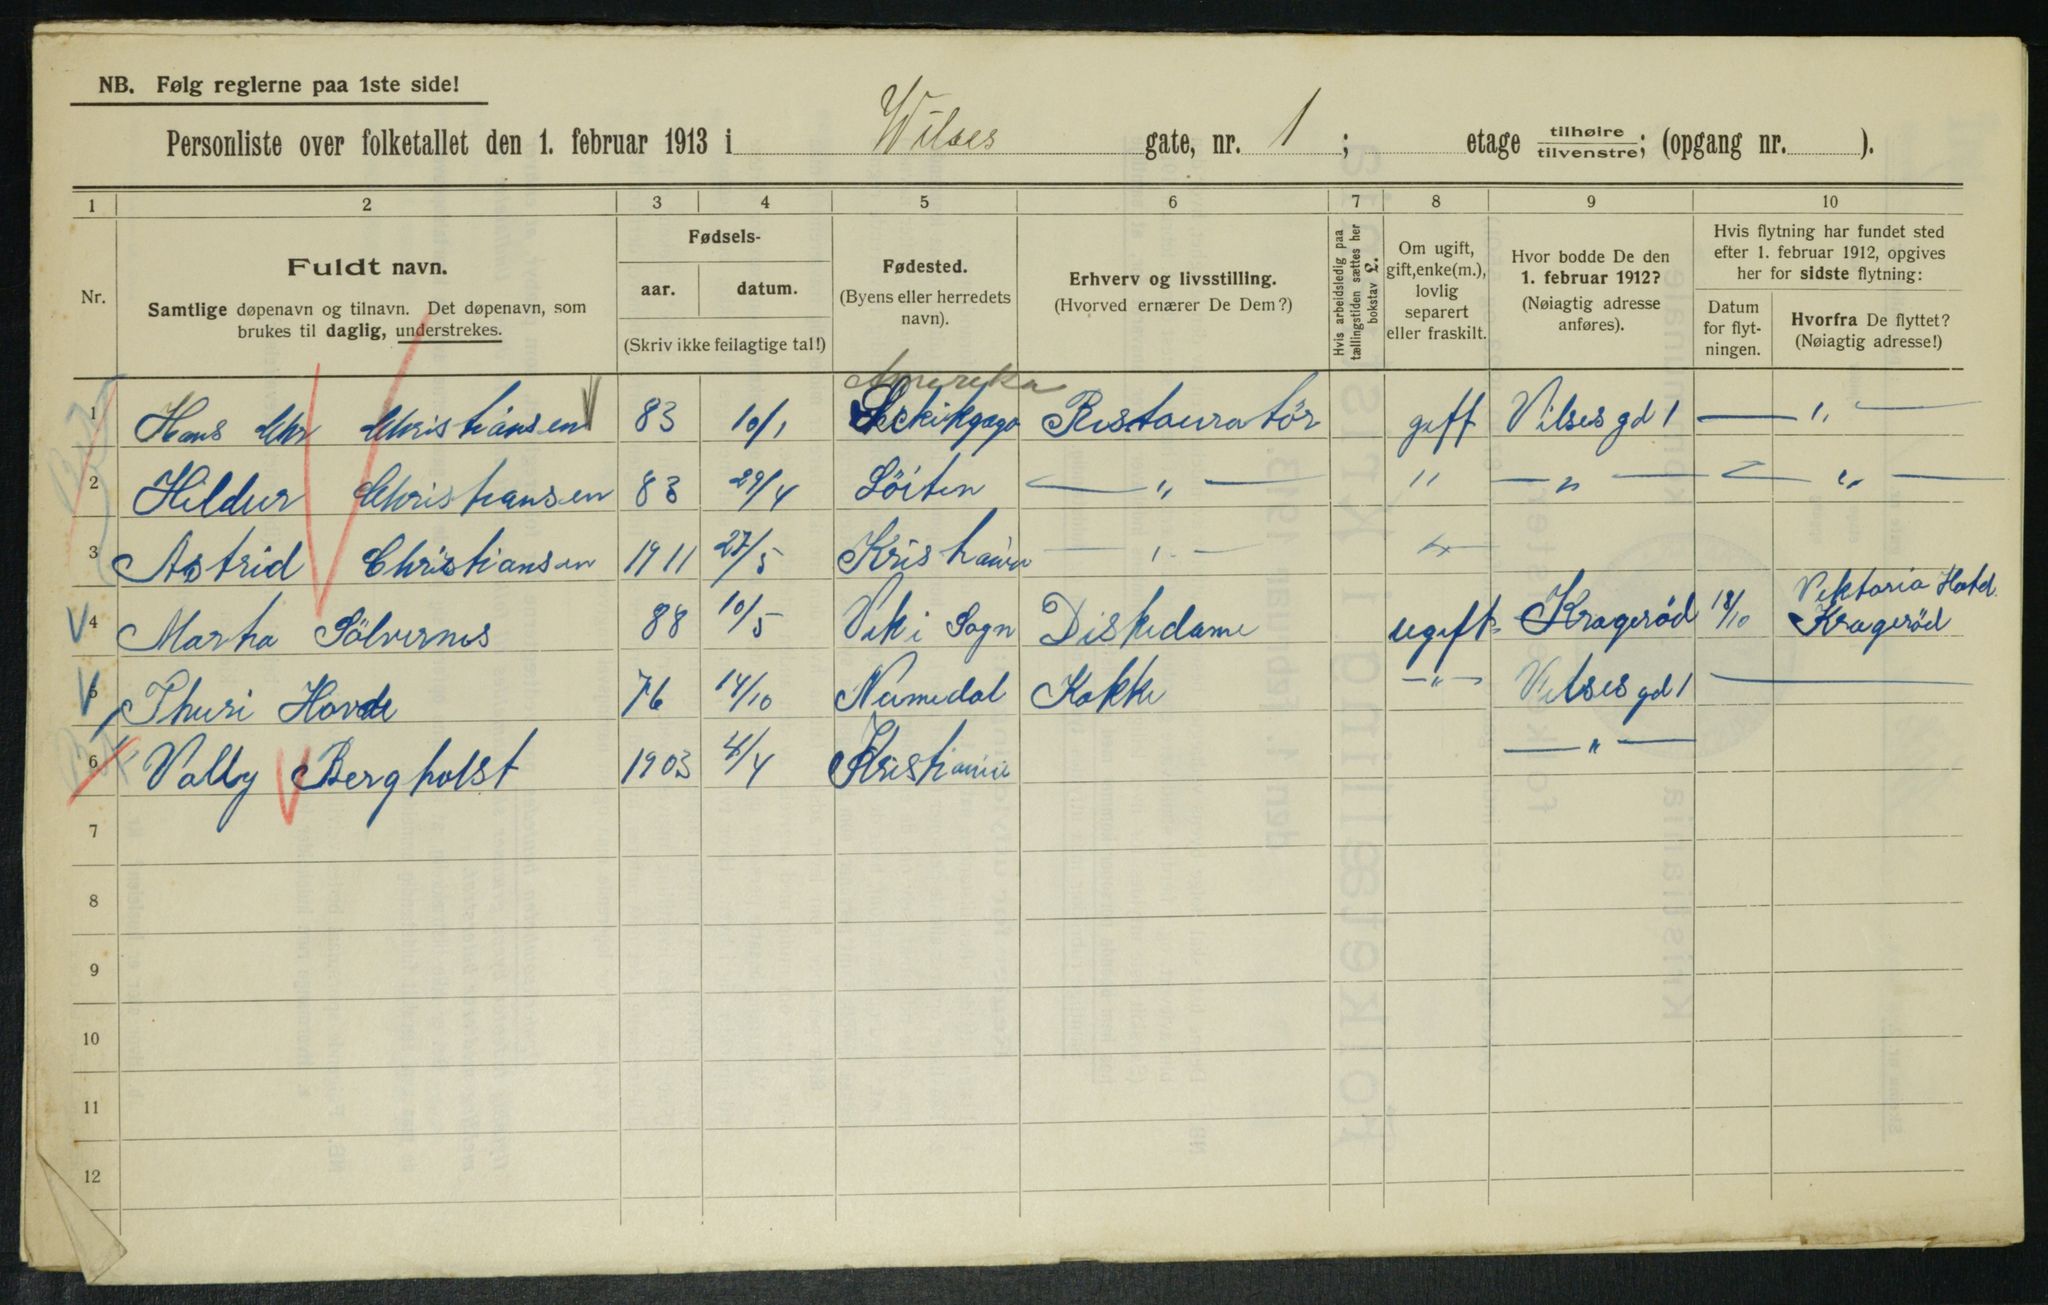 NB. Følg reglerne paa 1ste side!
Personliste over folketallet den 1. februar 1913 i Wilses gate, nr. 1; etage tilhøire/tilvenstre; (opgang nr. ).
1 2 3 4 5 6 7 8 9 10
Nr.
Fuldt navn.
Samtlige døpenavn og tilnavn. Det døpenavn, som
brukes til daglig, understrekes.
Fødsels-
aar. datum.
(Skriv ikke feilagtige tal!)
Fødested.
(Byens eller herredets
navn).
Erhverv og livsstilling.
(Hvorved ernærer De Dem?)
Hvis arbeidsledig paa
tællingstiden sættes her
bokstav L.
Om ugift,
gift, enke(m.),
lovlig
separert
eller fraskilt.
Hvor bodde De den
1. februar 1912?
(Nøiagtig adresse
anføres).
Hvis flytning har fundet sted
efter 1. februar 1912, opgives
her for sidste flytning:
Datum
for flyt-
ningen.
Hvorfra De flyttet?
(Nøiagtig adresse!)
Amerika
1 Hans Chr Christiansen 83 10/1 Restauratör gift Vilses gd 1 — " —
2 Hildur Christiansen 83 29/4 Löiten — " — " — " — — " —
3 Astrid Christiansen 1911 27/5 Kristiania — " —
Viktoria Hotel
4 Martha Sölvernes 88 10/5 Vik i Sogn Diskedame ugift Kragerød 18/10 Kragerød
5 Thuri Hovde 76 14/10 Numedal Kokke — " — Vilses gd 1 —
6 Valby Bergholst 1903 4/4 Kristiania — " —
7
8
9
10
11
12